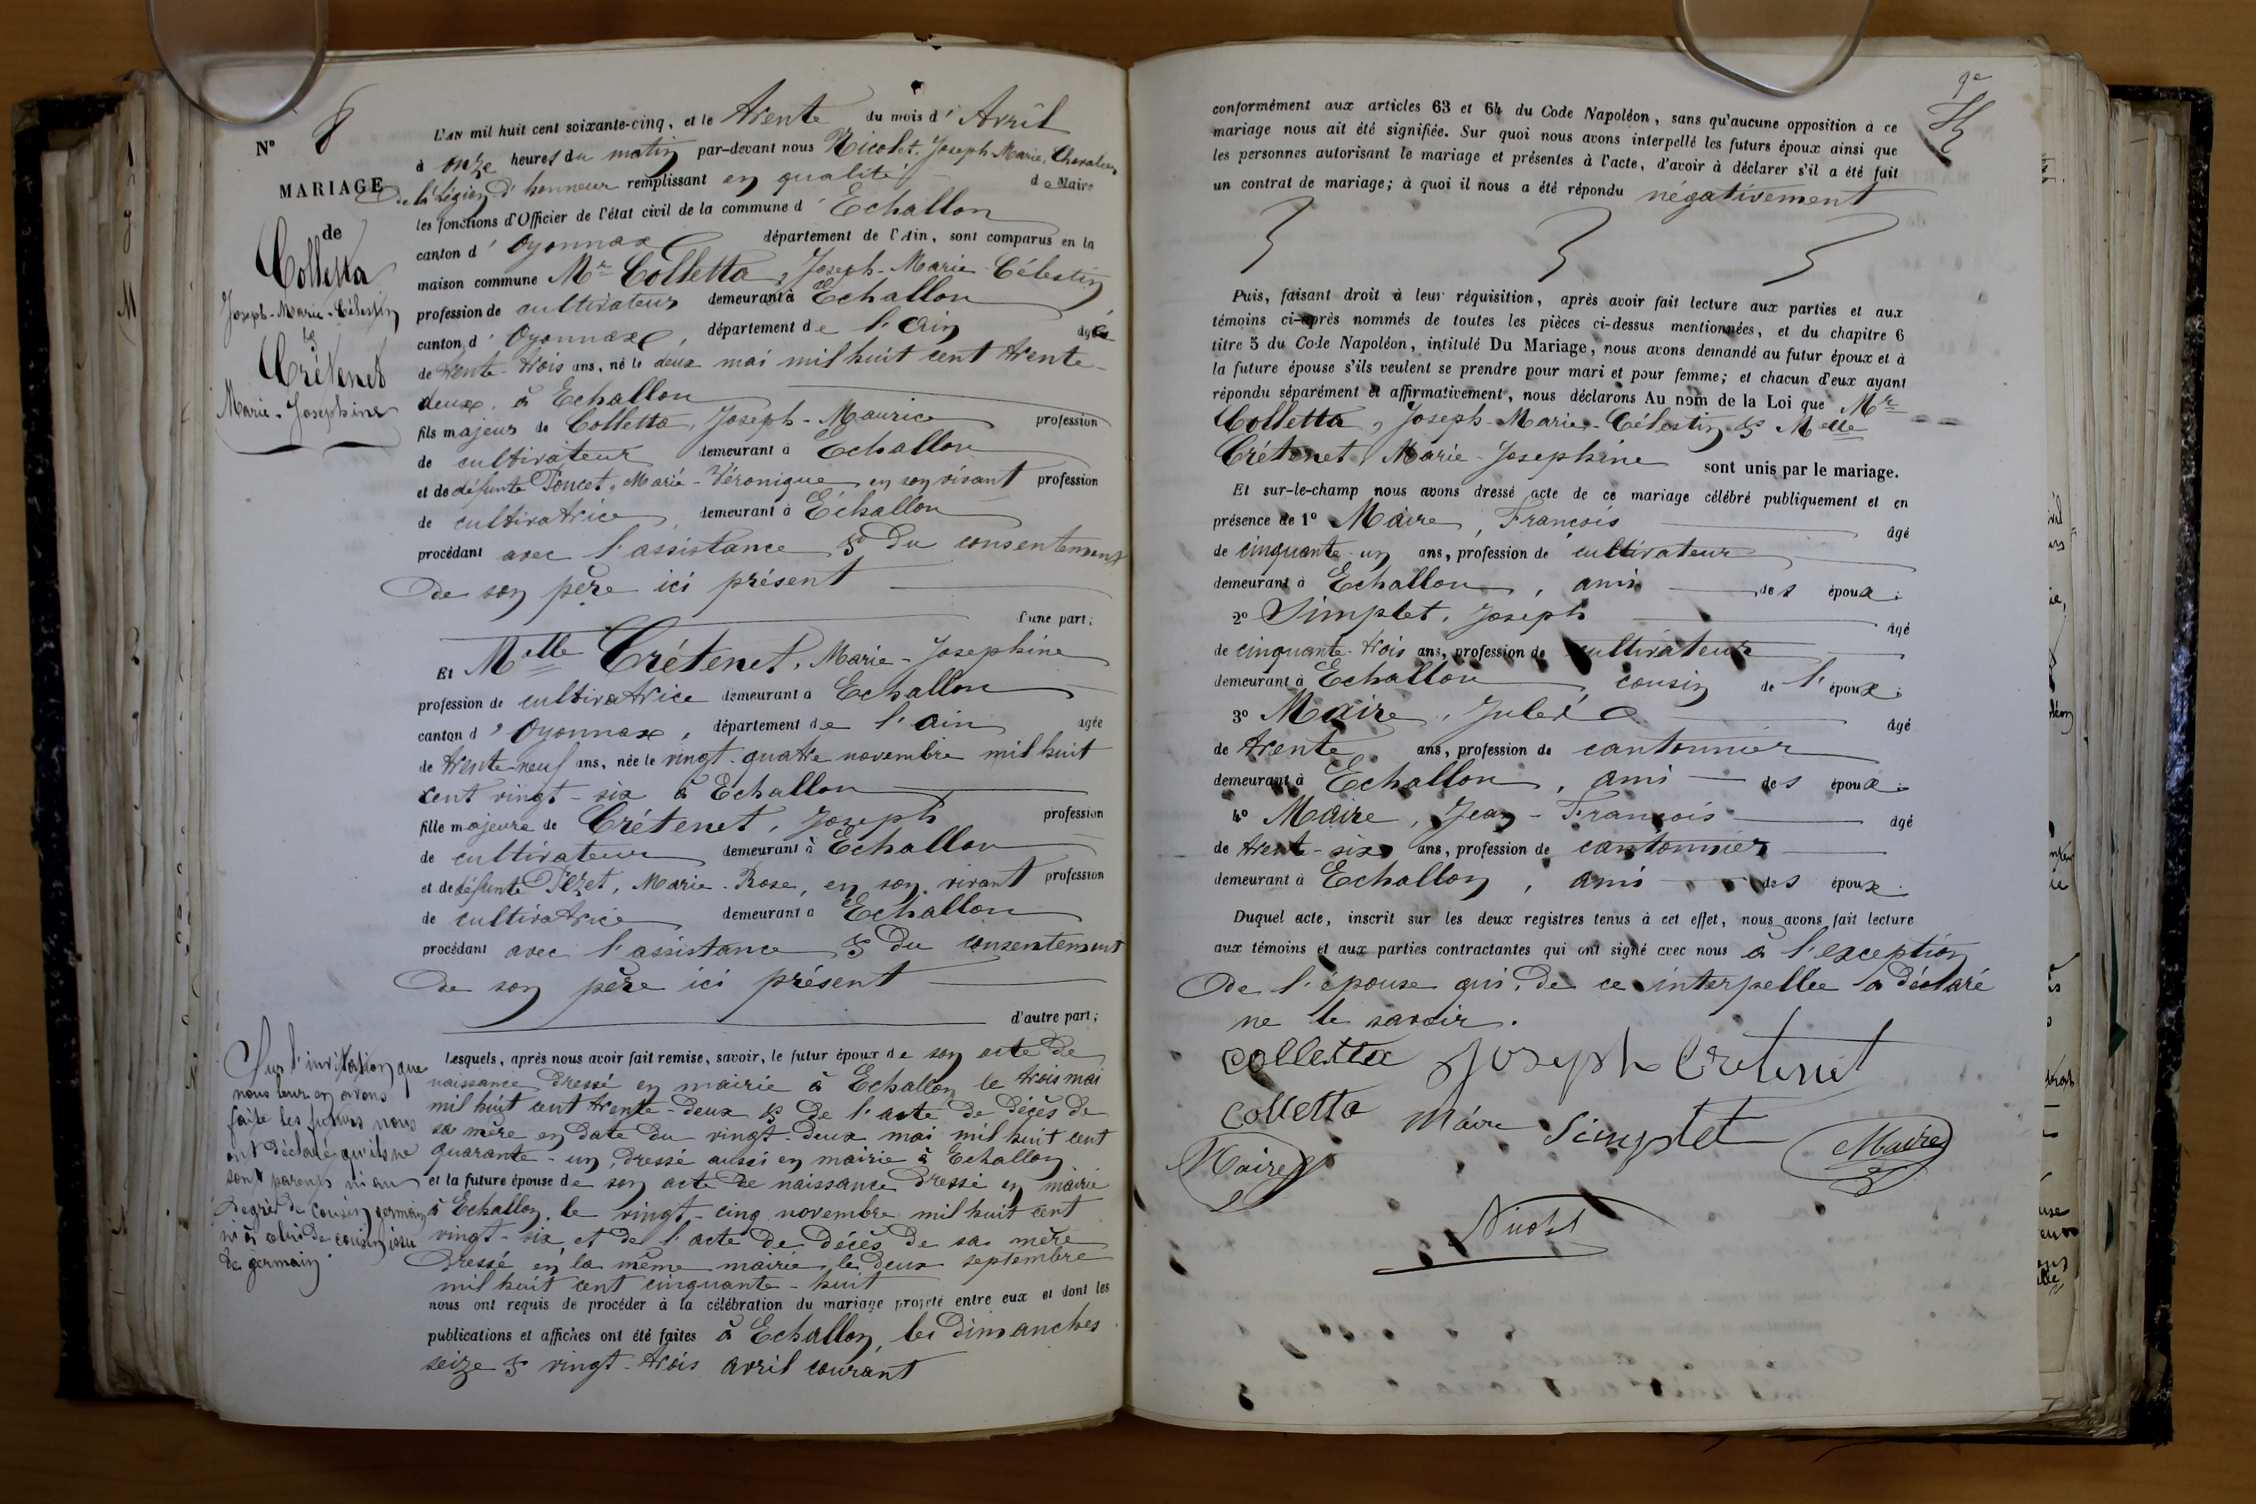 N° 8
MARIAGE
de
Colletta
Joseph-Marie-Célestin
&
Crétenet
Marie-Josephine
L'AN mil huit cent soixante-cinq, et le trente du mois d'Avril
à onze heures du matin par-devant nous Nicolet, Joseph-Marie, Chevalier
de la Légion d'honneur remplissant en qualité de Maire
les fonctions d'Officier de l'état civil de la commune d'Echallon
canton d'Oyonnax département de l'Ain, sont comparus en la
maison commune Mr Colletta, Joseph-Marie-Célestin
profession de cultivateur demeurant à Echallon
canton d'Oyonnax, département de l'Ain âgé
de trente-trois ans, né le deux mai mil huit cent trente-
deux, à Echallon
fils majeur de Colletta, Joseph-Maurice profession
de cultivateur demeurant à Echallon
et de défunte Poncet, Marie-Véronique en son vivant profession
de cultivatrice, demeurant à Echallon
procédant avec l'assistance & du consentement
de son père ici présent
d'une part;
Et Melle Crétenet, Marie-Josephine
profession de cultivatrice demeurant à Echallon
canton d'Oyonnax, département de l'Ain âgée
de trente-neuf ans, née le vingt-quatre novembre mil huit
cent vingt-six à Echallon
fille majeure de Crétenet, Joseph profession
de cultivateur demeurant à Echallon
et de défunte Pezet, Marie-Rose, en son vivant profession
de cultivatrice demeurant à Echallon
procédant avec l'assistance & du consentement
de son père ici présent
d'autre part;
Lesquels, après nous avoir fait remise, savoir, le futur époux de son acte de
naissance dressé en mairie à Echallon le trois mai
mil huit cent trente-deux & de l'acte de décès de
sa mère en date du vingt-deux mai mil huit cent
quarante-un, dressé aussi en mairie à Echallon
et la future épouse de son acte de naissance dressé en mairie
à Echallon, le vingt-cinq novembre mil huit cent
vingt-six et de l'acte de décès de sa mère
dressé en la même mairie le deux septembre
mil huit cent cinquante-huit
nous ont requis de procéder à la célébration du mariage projeté entre eux et dont les
publications et affiches ont été faites à Echallon, les dimanches
seize & vingt-trois avril courant
Sur l'invitation que
nous leur en avons
faite les futurs nous
ont déclaré qu'ils ne
sont parents ni au
degré de cousin germain
ni à celui de cousin issu
de germain
conformément aux articles 63 et 64 du Code Napoléon, sans qu'aucune opposition à ce
mariage nous ait été signifiée. Sur quoi nous avons interpellé les futurs époux ainsi que
les personnes autorisant le mariage et présentes à l'acte, d'avoir à déclarer s'il a été fait
un contrat de mariage; à quoi il nous a été répondu négativement
Puis, faisant droit à leur réquisition, après avoir fait lecture aux parties et aux
témoins ci-après nommés de toutes les pièces ci-dessus mentionnées, et du chapitre 6
titre 5 du Code Napoléon, intitulé Du Mariage, nous avons demandé au futur époux et à
la future épouse s'ils veulent se prendre pour mari et pour femme; et chacun d'eux ayant
répondu séparément et affirmativement, nous déclarons Au nom de la Loi que Mr
Colletta, Joseph-Marie-Célestin & Melle
Crétenet, Marie-Josephine sont unis par le mariage.
Et sur-le-champ nous avons dressé acte de ce mariage célébré publiquement et en
présence de 1° Maire, François âgé
de cinquante-un ans, profession de cultivateur
demeurant à Echallon, ami des époux.
2° Simplet, Joseph âgé
de cinquante-trois ans, profession de cultivateur
demeurant à Echallon, cousin de l'époux.
3° Maire, Jules âgé
de trente ans, profession de cantonnier
demeurant à Echallon, ami des époux.
4° Maire, Jean-François âgé
de trente-six ans, profession de cantonnier
demeurant à Echallon, ami des époux.
Duquel acte, inscrit sur les deux registres tenus à cet effet, nous avons fait lecture
aux témoins et aux parties contractantes qui ont signé avec nous à l'exception
de l'épouse qui, de ce interpellée a déclaré
ne le savoir.
Colletta Joseph Crétenet
Colletta Maire Simplet Maire
Maire
Nicolet